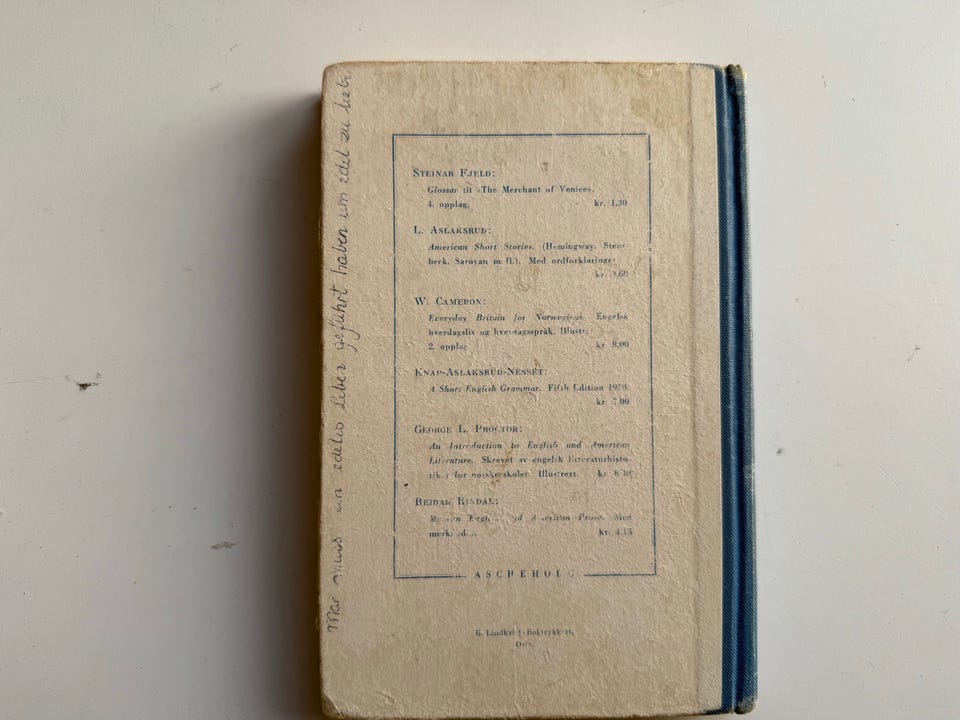 STEINAR FJELD:
Glossar til «The Merchant of Venice».
4. opplag. kr. 1.30
L. ASLAKSRUD:
American Short Stories. (Hemingway, Stein-
beck, Saroyan m. fl.). Med ordforklaringer
kr.
W. CAMERON:
Everyday Britain for Norwegians. Engelsk
hverdagsliv og hverdagsspråk. Illustr.
2. opplag kr. 8.00
KNAP-ASLAKSRUD-NESSET:
A Short English Grammar. Fifth Edition
kr. 7.00
GEORGE L. PROCTOR:
An Introduction to English and American
Literature. Skrevet av engelsk litteraturhisto-
riker for norske skoler. Illustrert. kr.
REIDAR
Modern English and American Prose. Med
kr. 4.15
ASCHEHOUG
G. Lindkvist Boktrykkeri,
Oslo.
Man muss ein edeles Leben geführt haben um edel zu